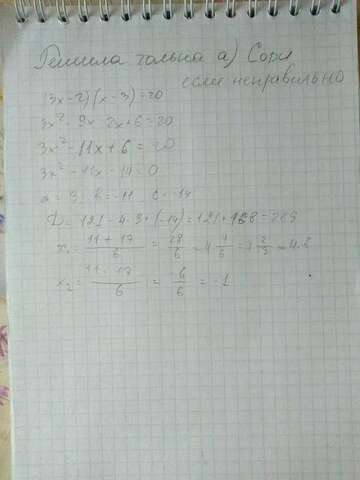 Решила только а) Сори
если неправильно
(3x-2)(x-3)=20
3x²-9x-2x+6=20
3x²-11x+6=20
3x²-11x-14=0
a=3 b=-11 c=-14
D=121-4·3·(-14)=121+168=289
x₁=(11+17)/6=28/6=4 4/6=4 2/3
x₂=(11-17)/6=-6/6=-1